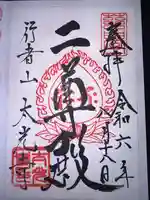 奉拝
令和六年
八月十六日
二尊殿
行者山
太光寺